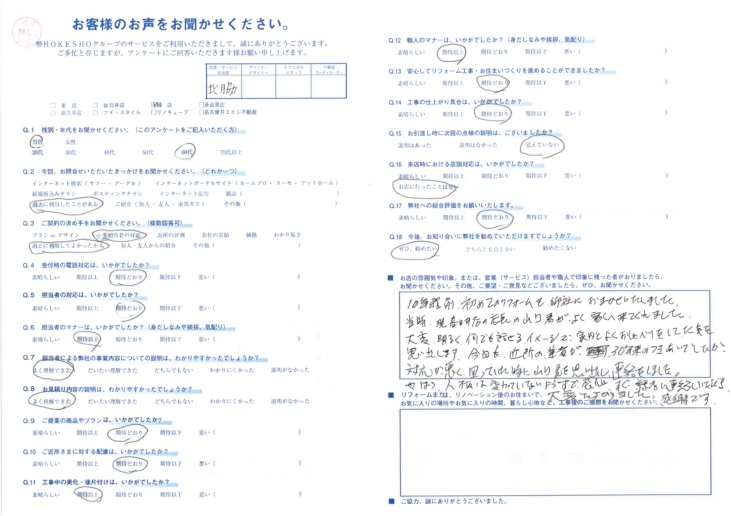 お客様のお声をお聞かせください。
弊社OKESHOグループのサービスをご利用いただきまして、誠にありがとうございます。
ご多忙と存じますが、アンケートにご回答いただきます様お願い申し上げます。
営業・サービス担当者 プランナー・デザイナー テクニカルスタッフ 不動産コーディネーター
北脇
□本店 □春日井店 店 □多治見店
□長久手店 □アイ・スタイル □リノキューブ □名古屋Rエイジ不動産
Q.1 性別・年代をお聞かせください。(このアンケートをご記入いただく方)
男性 女性
20代 30代 40代 50代 60代 70代以上
Q.2 今回、お問合せいただいたきっかけをお聞かせください。(どれか一つ)
インターネット検索(ヤフー・グーグル) インターネットポータルサイト(ホームプロ・スーモ・アットホーム)
新聞折込みチラシ ポスティングチラシ インターネット広告 雑誌( )
過去に利用したことがある ご紹介(知人・友人・東邦ガス) その他( )
Q.3 ご契約の決め手をお聞かせください。(複数回答可)
プラン or デザイン 営業担当者の対応 近所の評判 会社の実績 価格 わかり易さ
過去に利用してよかったから 知人・友人からの紹介 その他( )
Q.4 受付時の電話対応は、いかがでしたか?
素晴らしい 期待以上 期待どおり 期待以下 悪い( )
Q.5 担当者の対応は、いかがでしたか?
素晴らしい 期待以上 期待どおり 期待以下 悪い( )
Q.6 担当者のマナーは、いかがでしたか?(身だしなみや挨拶、気配り)
素晴らしい 期待以上 期待どおり 期待以下 悪い( )
Q.7 担当者による弊社の事業内容についての説明は、わかりやすかったでしょうか?
よく理解できた だいたい理解できた どちらでもない わかりにくかった 説明がなかった
Q.8 お見積り内容の説明は、わかりやすかったでしょうか?
よく理解できた だいたい理解できた どちらでもない わかりにくかった 説明がなかった
Q.9 ご提案の商品やプランは、いかがでしたか?
素晴らしい 期待以上 期待どおり 期待以下 悪い( )
Q.10 ご近所さまに対する配慮は、いかがでしたか?
素晴らしい 期待以上 期待どおり 期待以下 悪い( )
Q.11 工事中の美化・後片付けは、いかがでしたか?
素晴らしい 期待以上 期待どおり 期待以下 悪い( )
Q.12 職人のマナーは、いかがでしたか?(身だしなみや挨拶、気配り)
素晴らしい 期待以上 期待どおり 期待以下 悪い( )
Q.13 安心してリフォーム工事・お住まいづくりを進めることができましたか?
素晴らしい 期待以上 期待どおり 期待以下 悪い( )
Q.14 工事の仕上がり具合は、いかがでしたか?
素晴らしい 期待以上 期待どおり 期待以下 悪い( )
Q.15 お引渡し時に次回の点検の説明は、ございましたか?
説明はあった 説明はなかった 覚えていない
Q.16 来店時における店頭対応は、いかがでしたか?
素晴らしい 期待以上 期待どおり 期待以下 悪い( )
お店に行ったことはない
Q.17 弊社への総合評価をお願いいたします。
素晴らしい 期待以上 期待どおり 期待以下 悪い( )
Q.18 今後、お知り合いに弊社を勧めていただけますでしょうか?
ぜひ、勧めたい どちらとも言えない 勧めたくない
■お店の雰囲気や印象。または、営業(サービス)担当者や職人で印象に残った者がおりましたら、
お聞かせください。その他、ご要望・ご意見などございましたら、ぜひ、お聞かせください。
10年程前、初めてのリフォームを御社におまかせいたしました。
当時、現春日井店の店長の山り君がよく来てくれました。
大変明るく何でも話せるイメージで、家内とよくおしゃべりをしてた事を
思い出します。今回も、近所の業者が 30年来のつきあいでしたが
対応が悪く、困っていた時に山り君を思い出し、連絡をしました。
■リフォームまたは、リノベーション後のお住まいで、
お気に入りの場所やお気に入りの時間、暮らし心地など、工事後のご感想をお聞かせください。
大変 感謝です。
■ご協力、誠にありがとうございました。